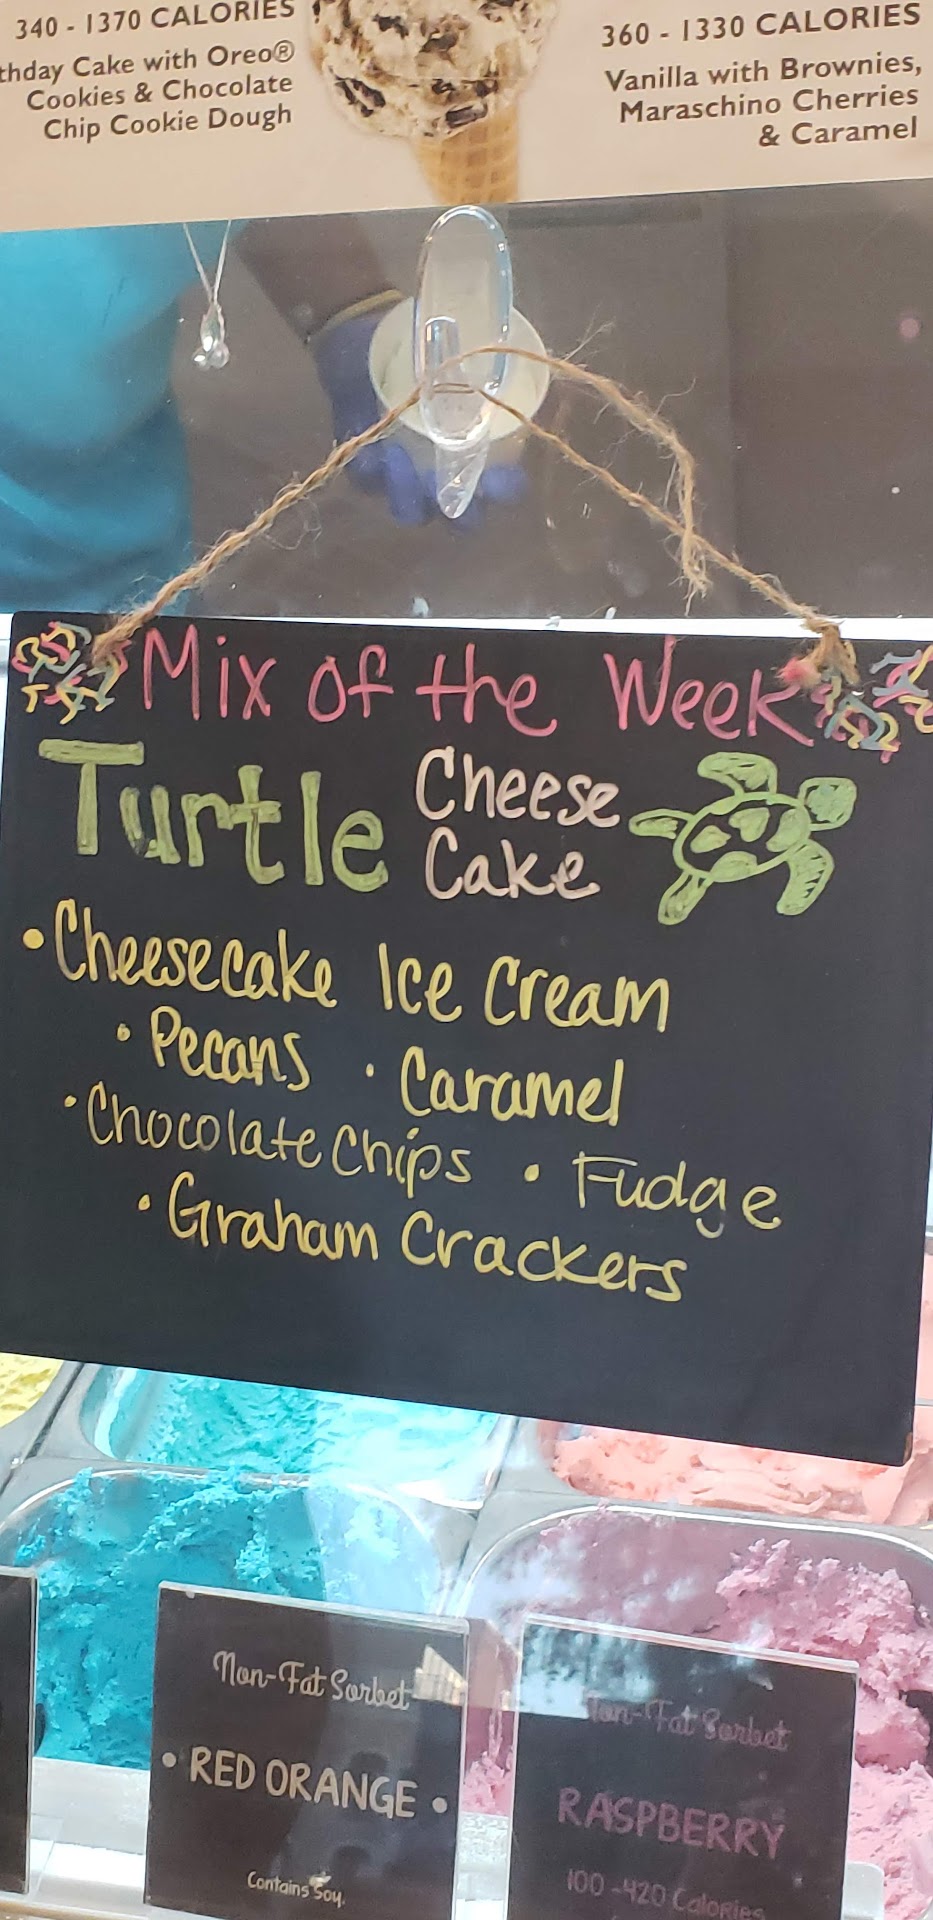 340 - 1370 CALORIES
thday Cake with Oreo®
Cookies & Chocolate
Chip Cookie Dough
360 - 1330 CALORIES
Vanilla with Brownies,
Maraschino Cherries
& Caramel
Mix of the Week
Turtle Cheese
Cake
• Cheesecake Ice Cream
• Pecans • Caramel
• Chocolate Chips • Fudge
• Graham Crackers
Non-Fat Sorbet
• RED ORANGE •
Contains Soy.
Non-Fat Sorbet
RASPBERRY
100-420 Calories